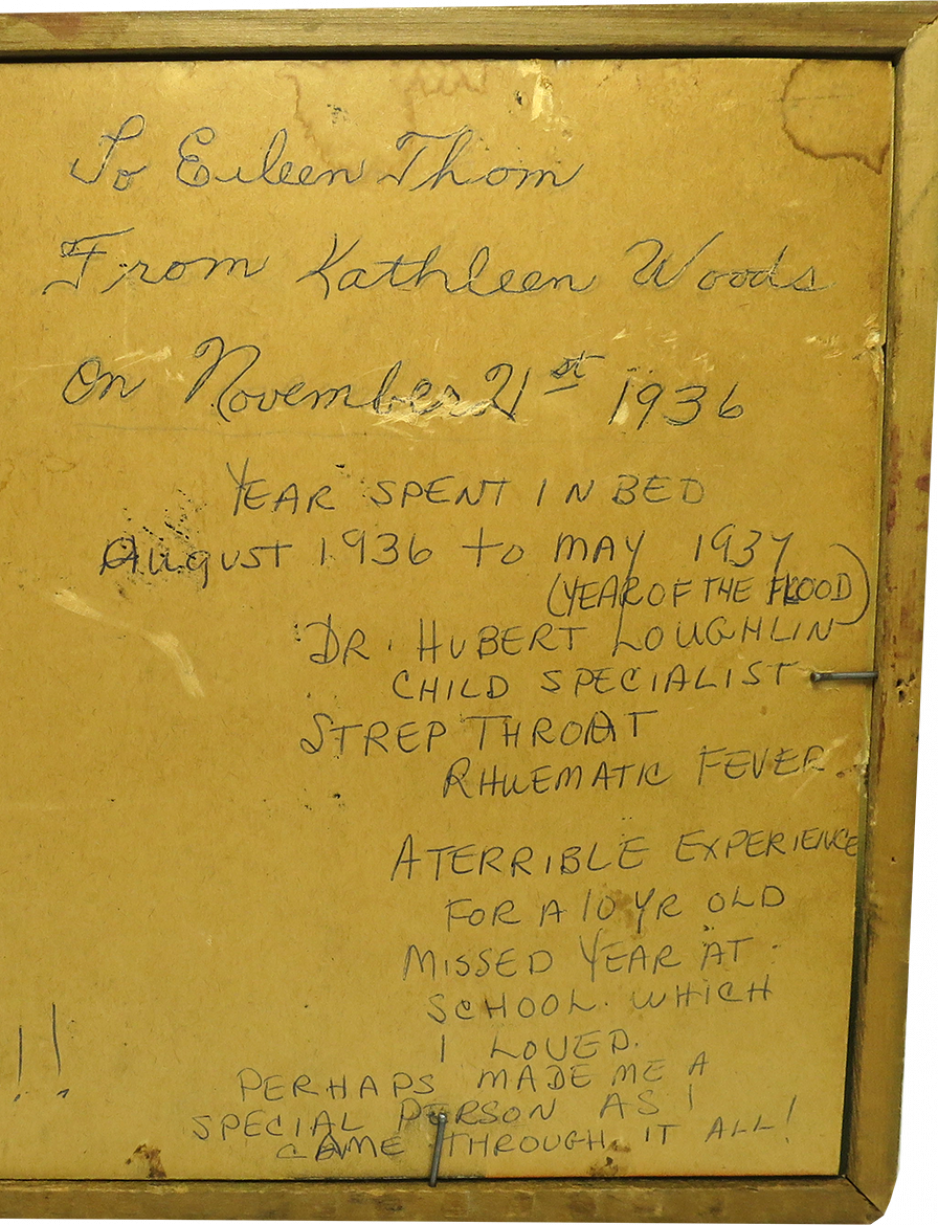 To Eileen Thom
From Kathleen Woods
On November 21st 1936
YEAR SPENT IN BED
AUgUST 1936 to MAY 1937
(YEAR OF THE FLOOD)
DR. HUBERT LOUGHLIN
CHILD SPECIALIST
STREP THROAT
RHUEMATIC FEVER
A TERRIBLE EXPERIENCE
FOR A 10 YR OLD
MISSED YEAR AT
SCHOOL. WHICH
I LOVED.
PERHAPS MADE ME A
SPECIAL PERSON AS I
CAME THROUGH IT ALL!
!!